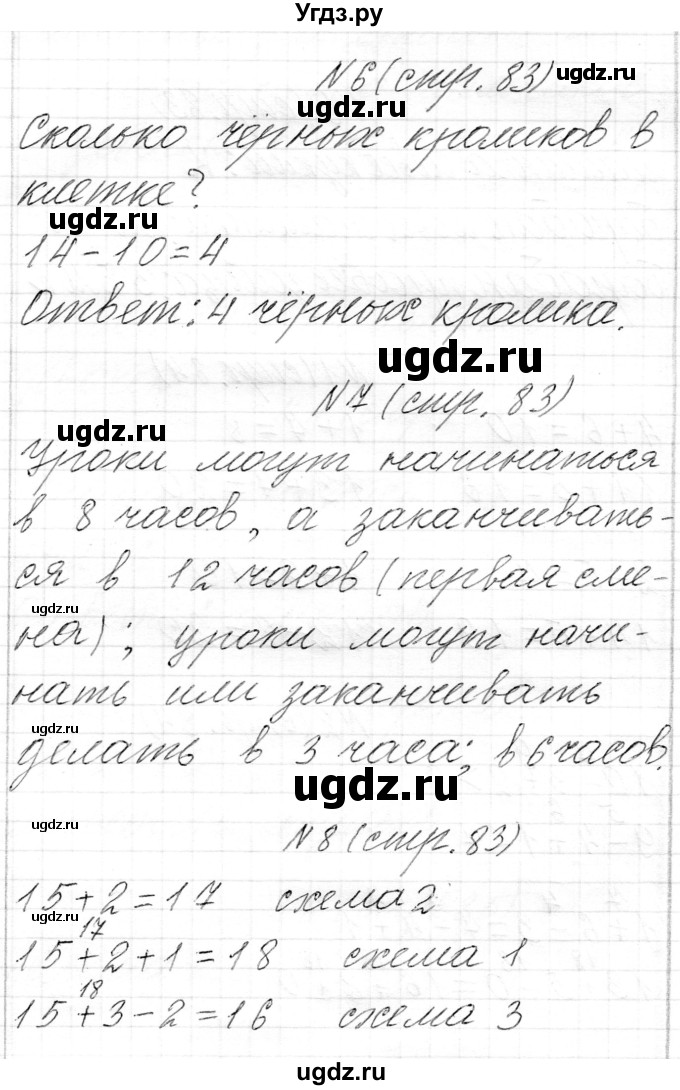 Угдз.ру
N 6 (стр. 83) ugdz.ru
ugdz.ru
Сколько чёрных кроликов в
клетке?
ugdz.ru
14 - 10 = 4
Ответ: 4 чёрных кролика.
ugdz.ru
N 7 (стр. 83)
ugdz.ru
Уроки могут начинаться
в 8 часов, а заканчивать-
ся в 12 часов (первая сме-
ugdz.ru
на); уроки могут начи-
нать или заканчивать
ugdz.ru
делать в 3 часа; в 6 часов.
ugdz.ru
ugdz.ru
N 8 (стр. 83)
15 + 2 = 17 схема 2
ugdz.ru
17
15 + 2 + 1 = 18 схема 1
18
15 + 3 - 2 = 16 схема 3
ugdz.ru
ugdz.ru